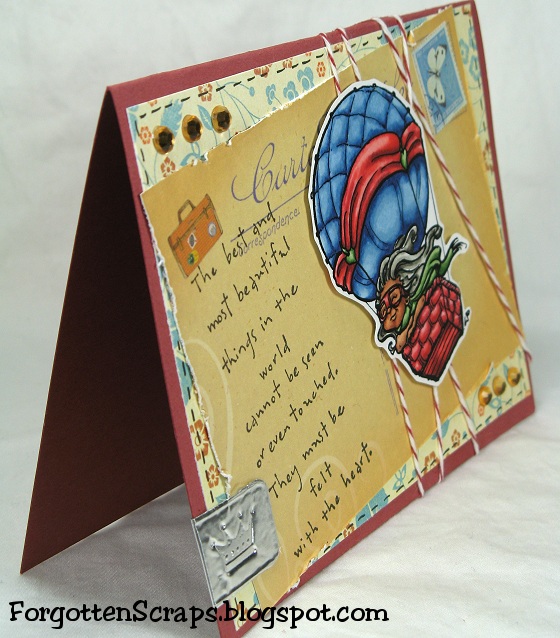 Cart
correspondence.
The best and
most beautiful
things in the
world
cannot be seen
or even touched.
They must be
felt
with the heart.
ForgottenScraps.blogspot.com